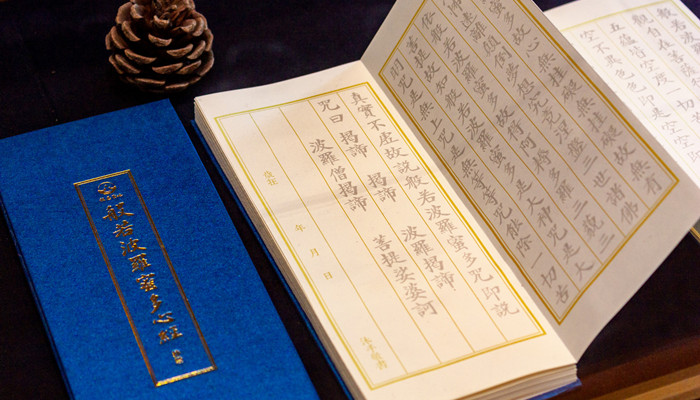 般若波羅蜜多心經
般若波
觀自在菩
五蘊皆空度一切
空不異色色即是空
蜜多故心無罣礙無罣礙故無有
怖遠離顛倒夢想究竟涅槃三世諸佛
依般若波羅蜜多故得阿耨多羅三藐三
菩提故知般若波羅蜜多是大神咒是大
明咒是無上咒是無等等咒能除一切苦
真實不虛故說般若波羅蜜多咒即說
咒曰 揭諦 揭諦 波羅揭諦
波羅僧揭諦 菩提娑婆訶
歲在 年 月 日
沐手敬書